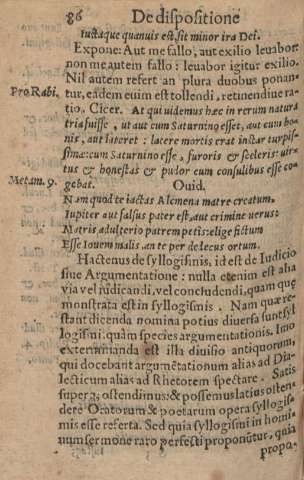 86 De dispositione
Iustaque quamuis est, sit minor ira Dei.
Expone: Aut me fallo, aut exilio leuabor
non me autem fallo: leuabor igitur exilio.
Nil autem refert an plura duobus ponan-
Pro Rabi. tur, eadem enim est tollendi, retinendiue ra-
tio. Cicer. At qui uidemus hæc in rerum natura
tria fuisse, ut aut cum Saturnino esset, aut cum bo-
nis, aut lateret: latere mortis erat instar turpis-
simæ: cum Saturnino esse, furoris & sceleris: uir-
tus & honestas & pudor cum consulibus esse co-
Metam. 9. gebat. Ouid.
Nam quod te iactas Alcmena matre creatum,
Iupiter aut falsus pater est, aut crimine uerus:
Matris adulterio patrem petis: elige fictum
Esse Iouem malis, an te per dedecus ortum.
Hactenus de syllogismis, id est de Iudicio
siue Argumentatione: nulla etenim est alia
via vel iudicandi, vel concludendi, quam quę
monstrata est in syllogismis. Nam quæ re-
stant dicenda nomina potius diuersa sunt syl
logismi, quàm species argumentationis. Imo
exterminanda est illa diuisio antiquorum,
qui docebant argumētationum alias ad Dia-
lecticum alias ad Rhetorem spectare. Satis
superq; ostendimus: & possemus latius osten-
dere Oratorum & poetarum opera syllogis-
mis esse referta. Sed quia syllogismi in homi-
num sermone raro perfecti proponūtur, quia
propo-